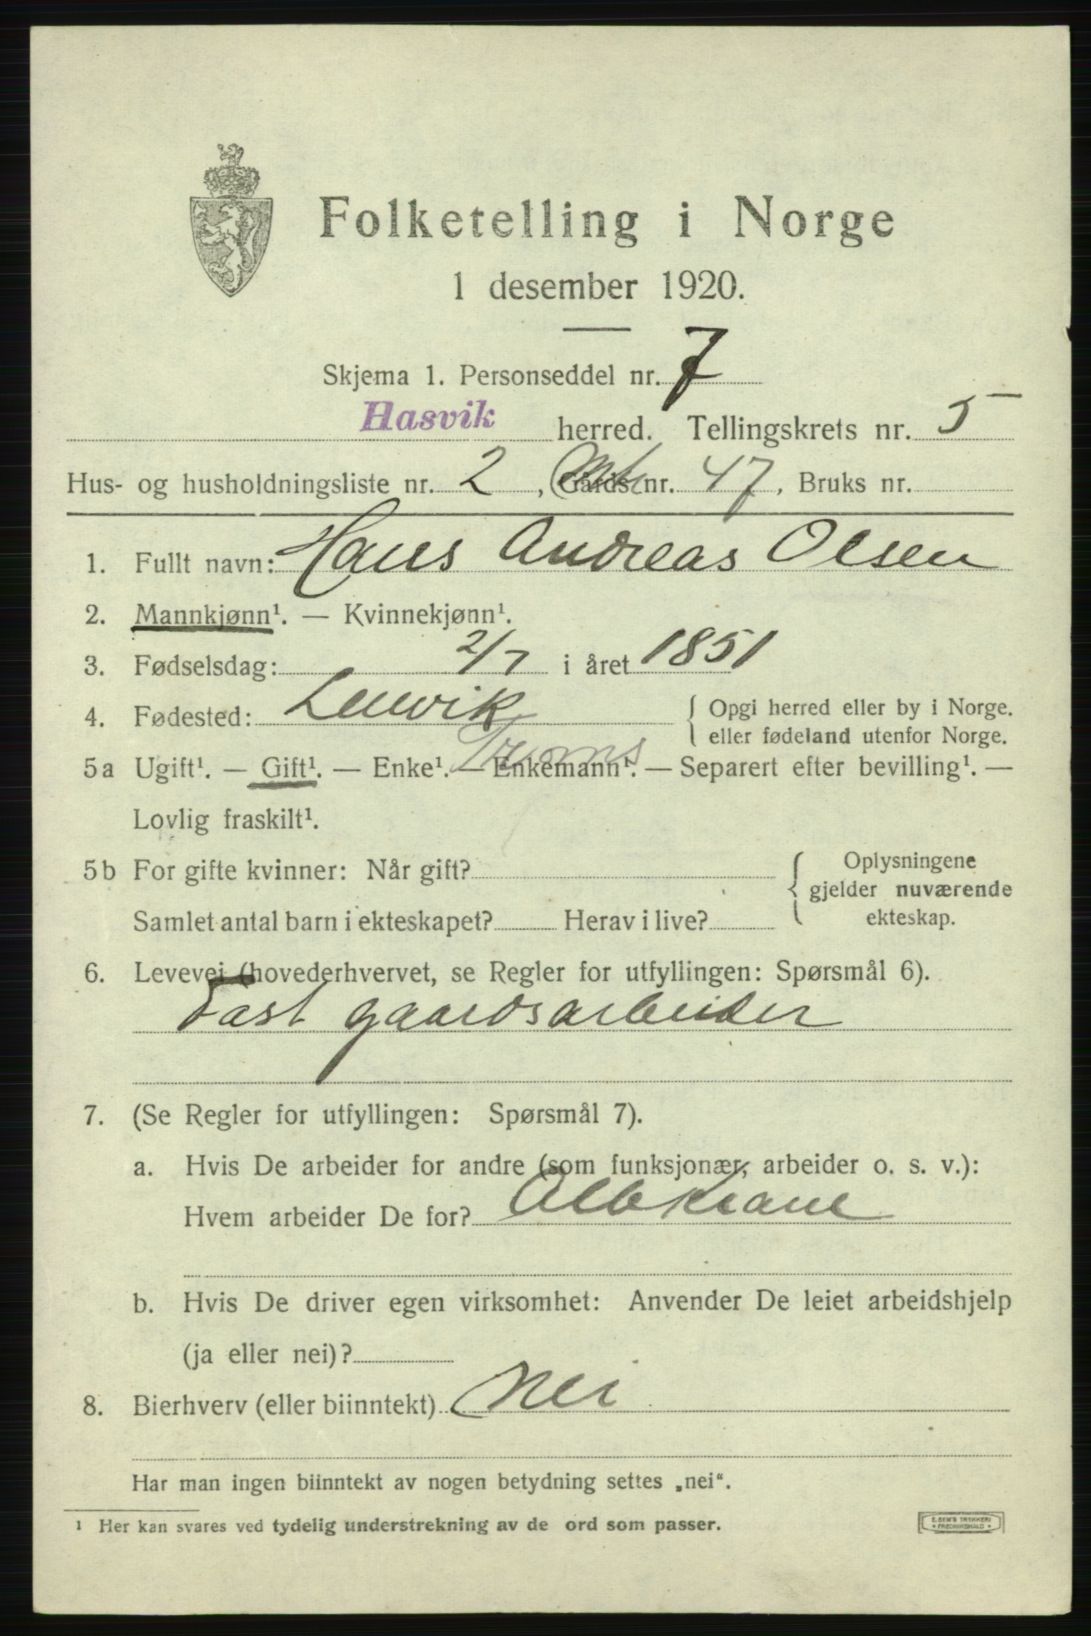 Folketelling i Norge
1 desember 1920.
Skjema 1. Personseddel nr. 7
Hasvik herred. Tellingskrets nr. 5
Hus- og husholdningsliste nr. 2, (Gårds nr. 47, Bruks nr.
1. Fullt navn: Hans Andreas Olsen
2. Mannkjønn¹. — Kvinnekjønn¹.
3. Fødselsdag: 2/7 i året 1851
4. Fødested: Lenvik { Opgi herred eller by i Norge.
eller fødeland utenfor Norge.
Troms
5a Ugift¹. — Gift¹. — Enke¹. — Enkemann¹. — Separert efter bevilling¹. —
Lovlig fraskilt¹.
5b For gifte kvinner: Når gift? { Oplysningene
gjelder nuværende
Samlet antal barn i ekteskapet? Herav i live? ekteskap.
6. Levevei (hovederhvervet, se Regler for utfyllingen: Spørsmål 6).
Fast gaardsarbeider
7. (Se Regler for utfyllingen: Spørsmål 7).
a. Hvis De arbeider for andre (som funksjonær, arbeider o. s. v.):
Hvem arbeider De for? Alb Krane
b. Hvis De driver egen virksomhet: Anvender De leiet arbeidshjelp
(ja eller nei)?
8. Bierhverv (eller biinntekt) Nei
Har man ingen biinntekt av nogen betydning settes „nei“.
¹ Her kan svares ved tydelig understrekning av de ord som passer.